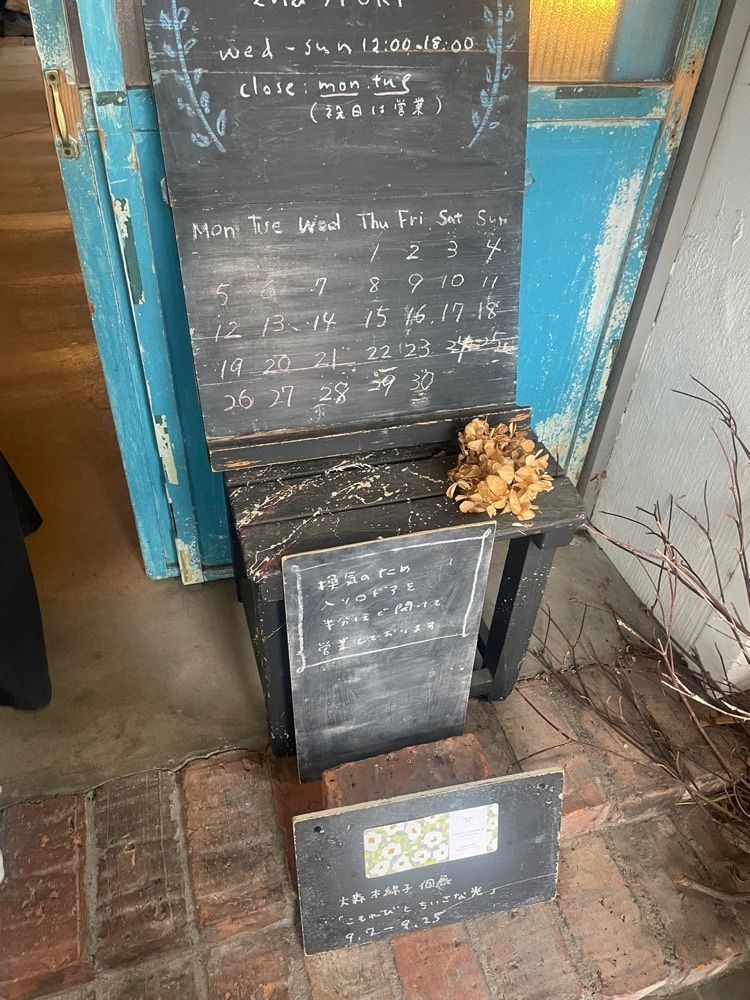 2nd STORY
wed - sun 12:00-18:00
close: mon. tue
(祝日は営業)
Mon Tue Wed Thu Fri Sat Sun
1 2 3 4
5 6 7 8 9 10 11
12 13 14 15 16 17 18
19 20 21 22 23 24 25
26 27 28 29 30
換気のため
入り口ドアを
半分ほど開けて
営業しております
大森木綿子 個展
「こもれびとちいさな光」
9.7-9.25